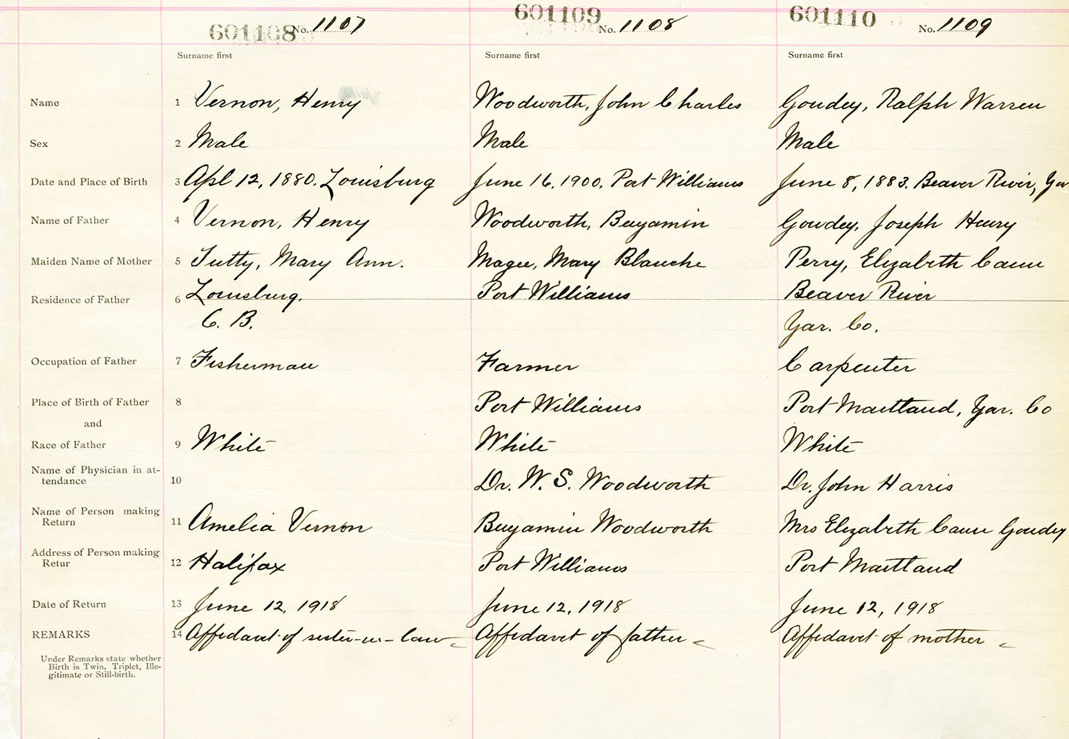 601108 No. 1107 601109 No. 1108 601110 No. 1109
Surname first Surname first Surname first
Name 1 Vernon, Henry Woodworth, John Charles Goudey, Ralph Warren
Sex 2 Male Male Male
Date and Place of Birth 3 Apl 12, 1880. Louisburg June 16, 1900. Port Williams June 8, 1883. Beaver River, Yar
Name of Father 4 Vernon, Henry Woodworth, Benjamin Goudey, Joseph Henry
Maiden Name of Mother 5 Tutty, Mary Ann. Magee, Mary Blanche Perry, Elizabeth Cann
Residence of Father 6 Louisburg. Port Williams Beaver River
C. B. Yar. Co.
Occupation of Father 7 Fisherman Farmer Carpenter
Place of Birth of Father 8 Port Williams Port Maitland, Yar. Co
and
Race of Father 9 White White White
Name of Physician in at-
tendance 10 Dr. W. S. Woodworth Dr. John Harris
Name of Person making
Return 11 Amelia Vernon Benjamin Woodworth Mrs Elizabeth Cann Goudey
Address of Person making
Retur 12 Halifax Port Williams Port Maitland
Date of Return 13 June 12, 1918 June 12, 1918 June 12, 1918
REMARKS 14 Affidavit of sister-in-law Affidavit of father Affidavit of mother
Under Remarks state whether
Birth is Twin, Triplet, Ille-
gitimate or Still-birth.